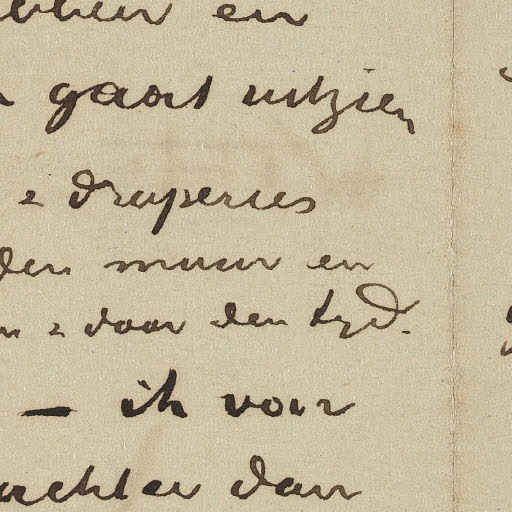 bben en
gaat uitzien
& draperies
den muur en
n & door den tyd.
— ik voor
achter dan